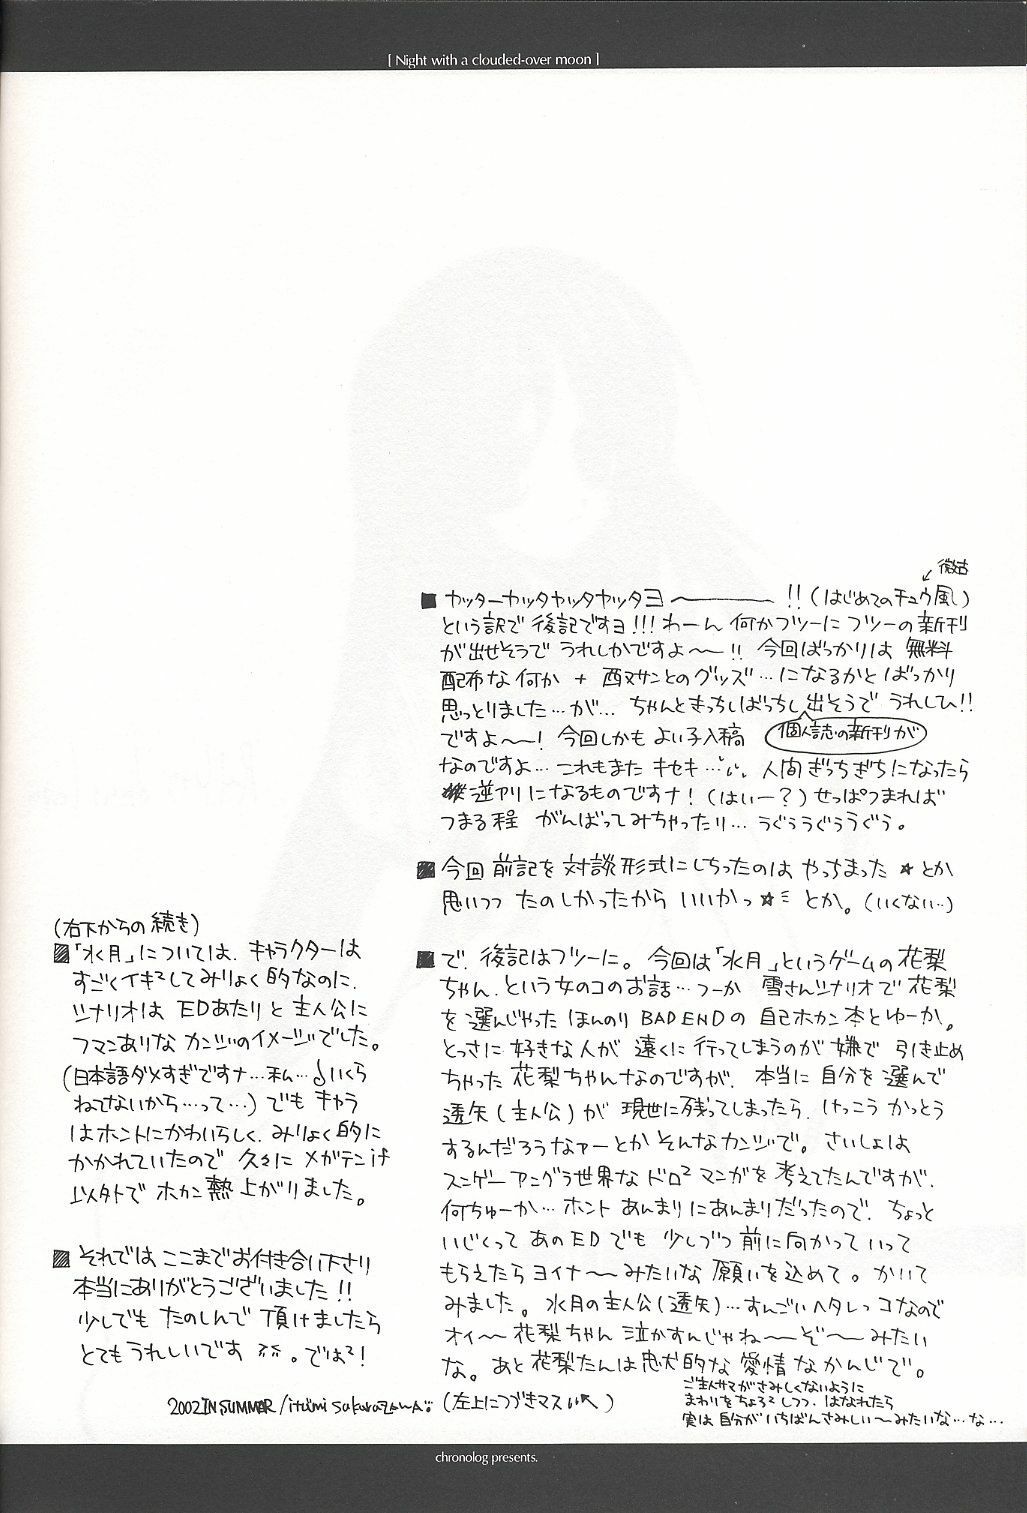 [ Night with a clouded-over moon ]
微古
■ ヤッターヤッタヤッタヤッタヨ〜――― !! (はじめてのチュウ風)
という訳で 後記ですヨ!!! わーん 何かフツーに フツーの新刊
が出せそうで うれしかですよ〜―!! 今回ばっかりは 無料
配布な何か + 酉又サンとのグッズ…になるかとばっかり
思っとりました…が… ちゃんときっちしばっちし出そうで うれしひ!!
個人誌の新刊が
ですよ〜―! 今回しかも よい子入稿
なのですよ… これもまた キセキ… 人間ぎっちぎちになったら
逆アリになるものですナ! (はいー?) せっぱつまれば
つまる程 がんばってみちゃったり… うぐぅうぐぅうぐぅ。
■ 今回 前記を 対談形式にしちったのは やっちまった☆とか
思いつつ たのしかったから いいかっ☆ミ とか。(いくない…)
■ で、後記はフツーに。 今回は「水月」というゲームの花梨
ちゃん、という女のコのお話…つーか 雪さんシナリオで花梨
を選んじゃった ほんのり BAD ENDの 自己ホカン本とゆーか。
とっさに 好きな人が 遠くに 行ってしまうのが 嫌で 引き止め
ちゃった 花梨ちゃんなのですが、本当に 自分を選んで
透矢(主人公)が 現世に残ってしまったら、けっこう かっとう
するんだろうなァーとか そんなカンジで。さいしょは
スンゲー アングラ世界な ドロ²マンガを考えてたんですが、
何ちゅーか… ホント あんまりにあんまりだったので、ちょっと
いじくって あのEDでも 少しづつ 前に向かって いって
もらえたら ヨイナ〜―みたいな 願いを込めて。かいて
みました。水月の主人公(透矢)…すんごいヘタレっコなので
オイ〜― 花梨ちゃん 泣かすんじゃね〜―ぞ〜― みたい
な。あと 花梨たんは忠犬的な 愛情なかんじで。
ご主人サマがさみしくないように
まわりをちょろ²しつつ、はなれたら
実は自分がいちばんさみしい〜みたいな…な…
(左上につづきマス↖)
(右下からの続き)
■「水月」については、キャラクターは
すごくイキ²してみりょく的なのに、
シナリオは EDあたりと 主人公に
フマンありな カンジのイメージでした。
(日本語ダメすぎですナ…私… いくら
ねてないから…って…) でも キャラ
はホントにかわいらしく、みりょく的に
かかれていたので 久々に メガテンif
以外で ホカン熱 上がりました。
■ それでは ここまでお付き合い下さり
本当にありがとうございました!!
少しでも たのしんで 頂けましたら
とてもうれしいです 。では²!
2002 IN SUMMER / itumi sakurazawa
chronolog presents.